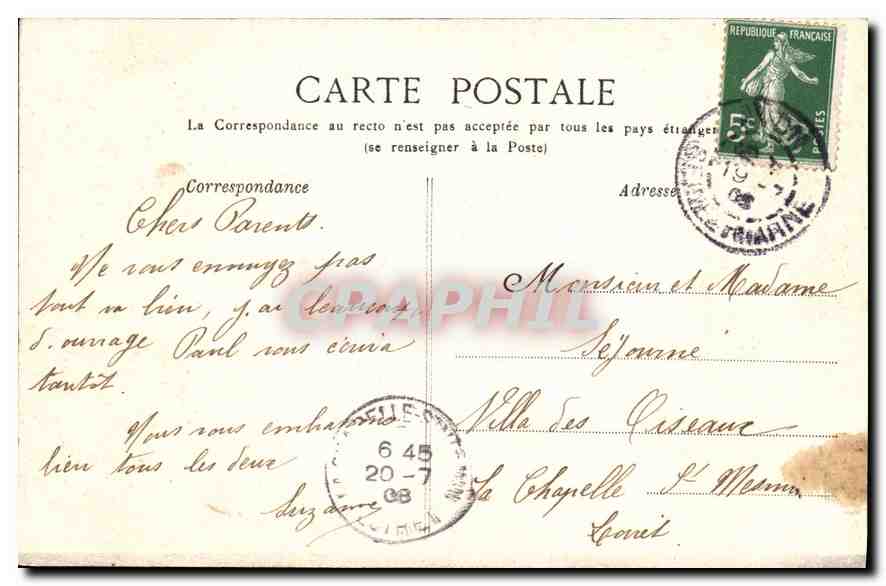 REPUBLIQUE FRANÇAISE
5c
POSTES
CARTE POSTALE
La Correspondance au recto n'est pas acceptée par tous les pays étranger
(se renseigner à la Poste)
Correspondance
Adresse
Chers Parents.
Ne vous ennuyez pas
tout va bien, j'ai beaucoup
d'ouvrage Paul vous écrira
tantôt
Nous vous embrassons
bien tous les deux
Suzanne
Monsieur et Madame
Séjourné
Villa des Oiseaux
La Chapelle St Mesmin
Loiret
CHAPELLE-ST-MESMIN
6 45
20 -7
08
LOIRET
ET MARNE
CPAPHIL